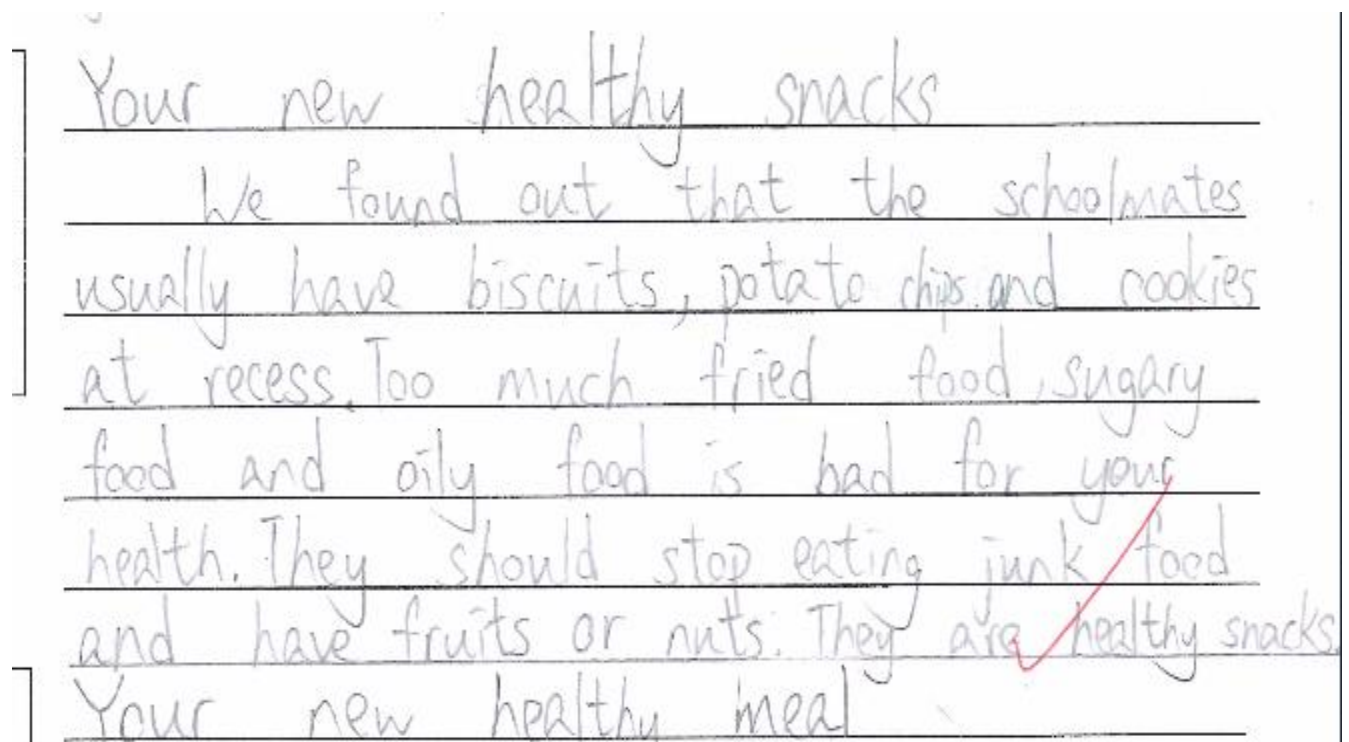 Your new healthy snacks
We found out that the schoolmates
usually have biscuits, potato chips and cookies
at recess. Too much fried food, sugary
food and oily food is bad for your
health. They should stop eating junk food
and have fruits or nuts. They are healthy snacks.
Your new healthy meal